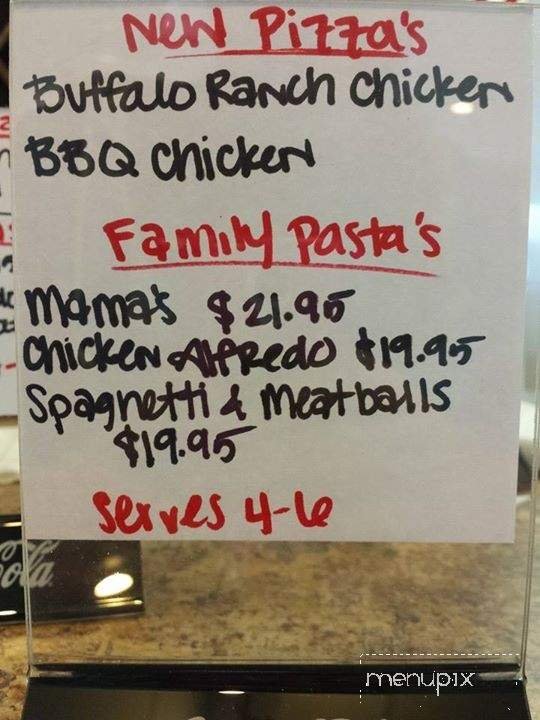 New Pizza's
Buffalo Ranch Chicken
BBQ Chicken
Family Pasta's
Mama's $21.95
Chicken Alfredo $19.95
Spaghetti & Meatballs
$19.95
Serves 4-6
Cola
menupix